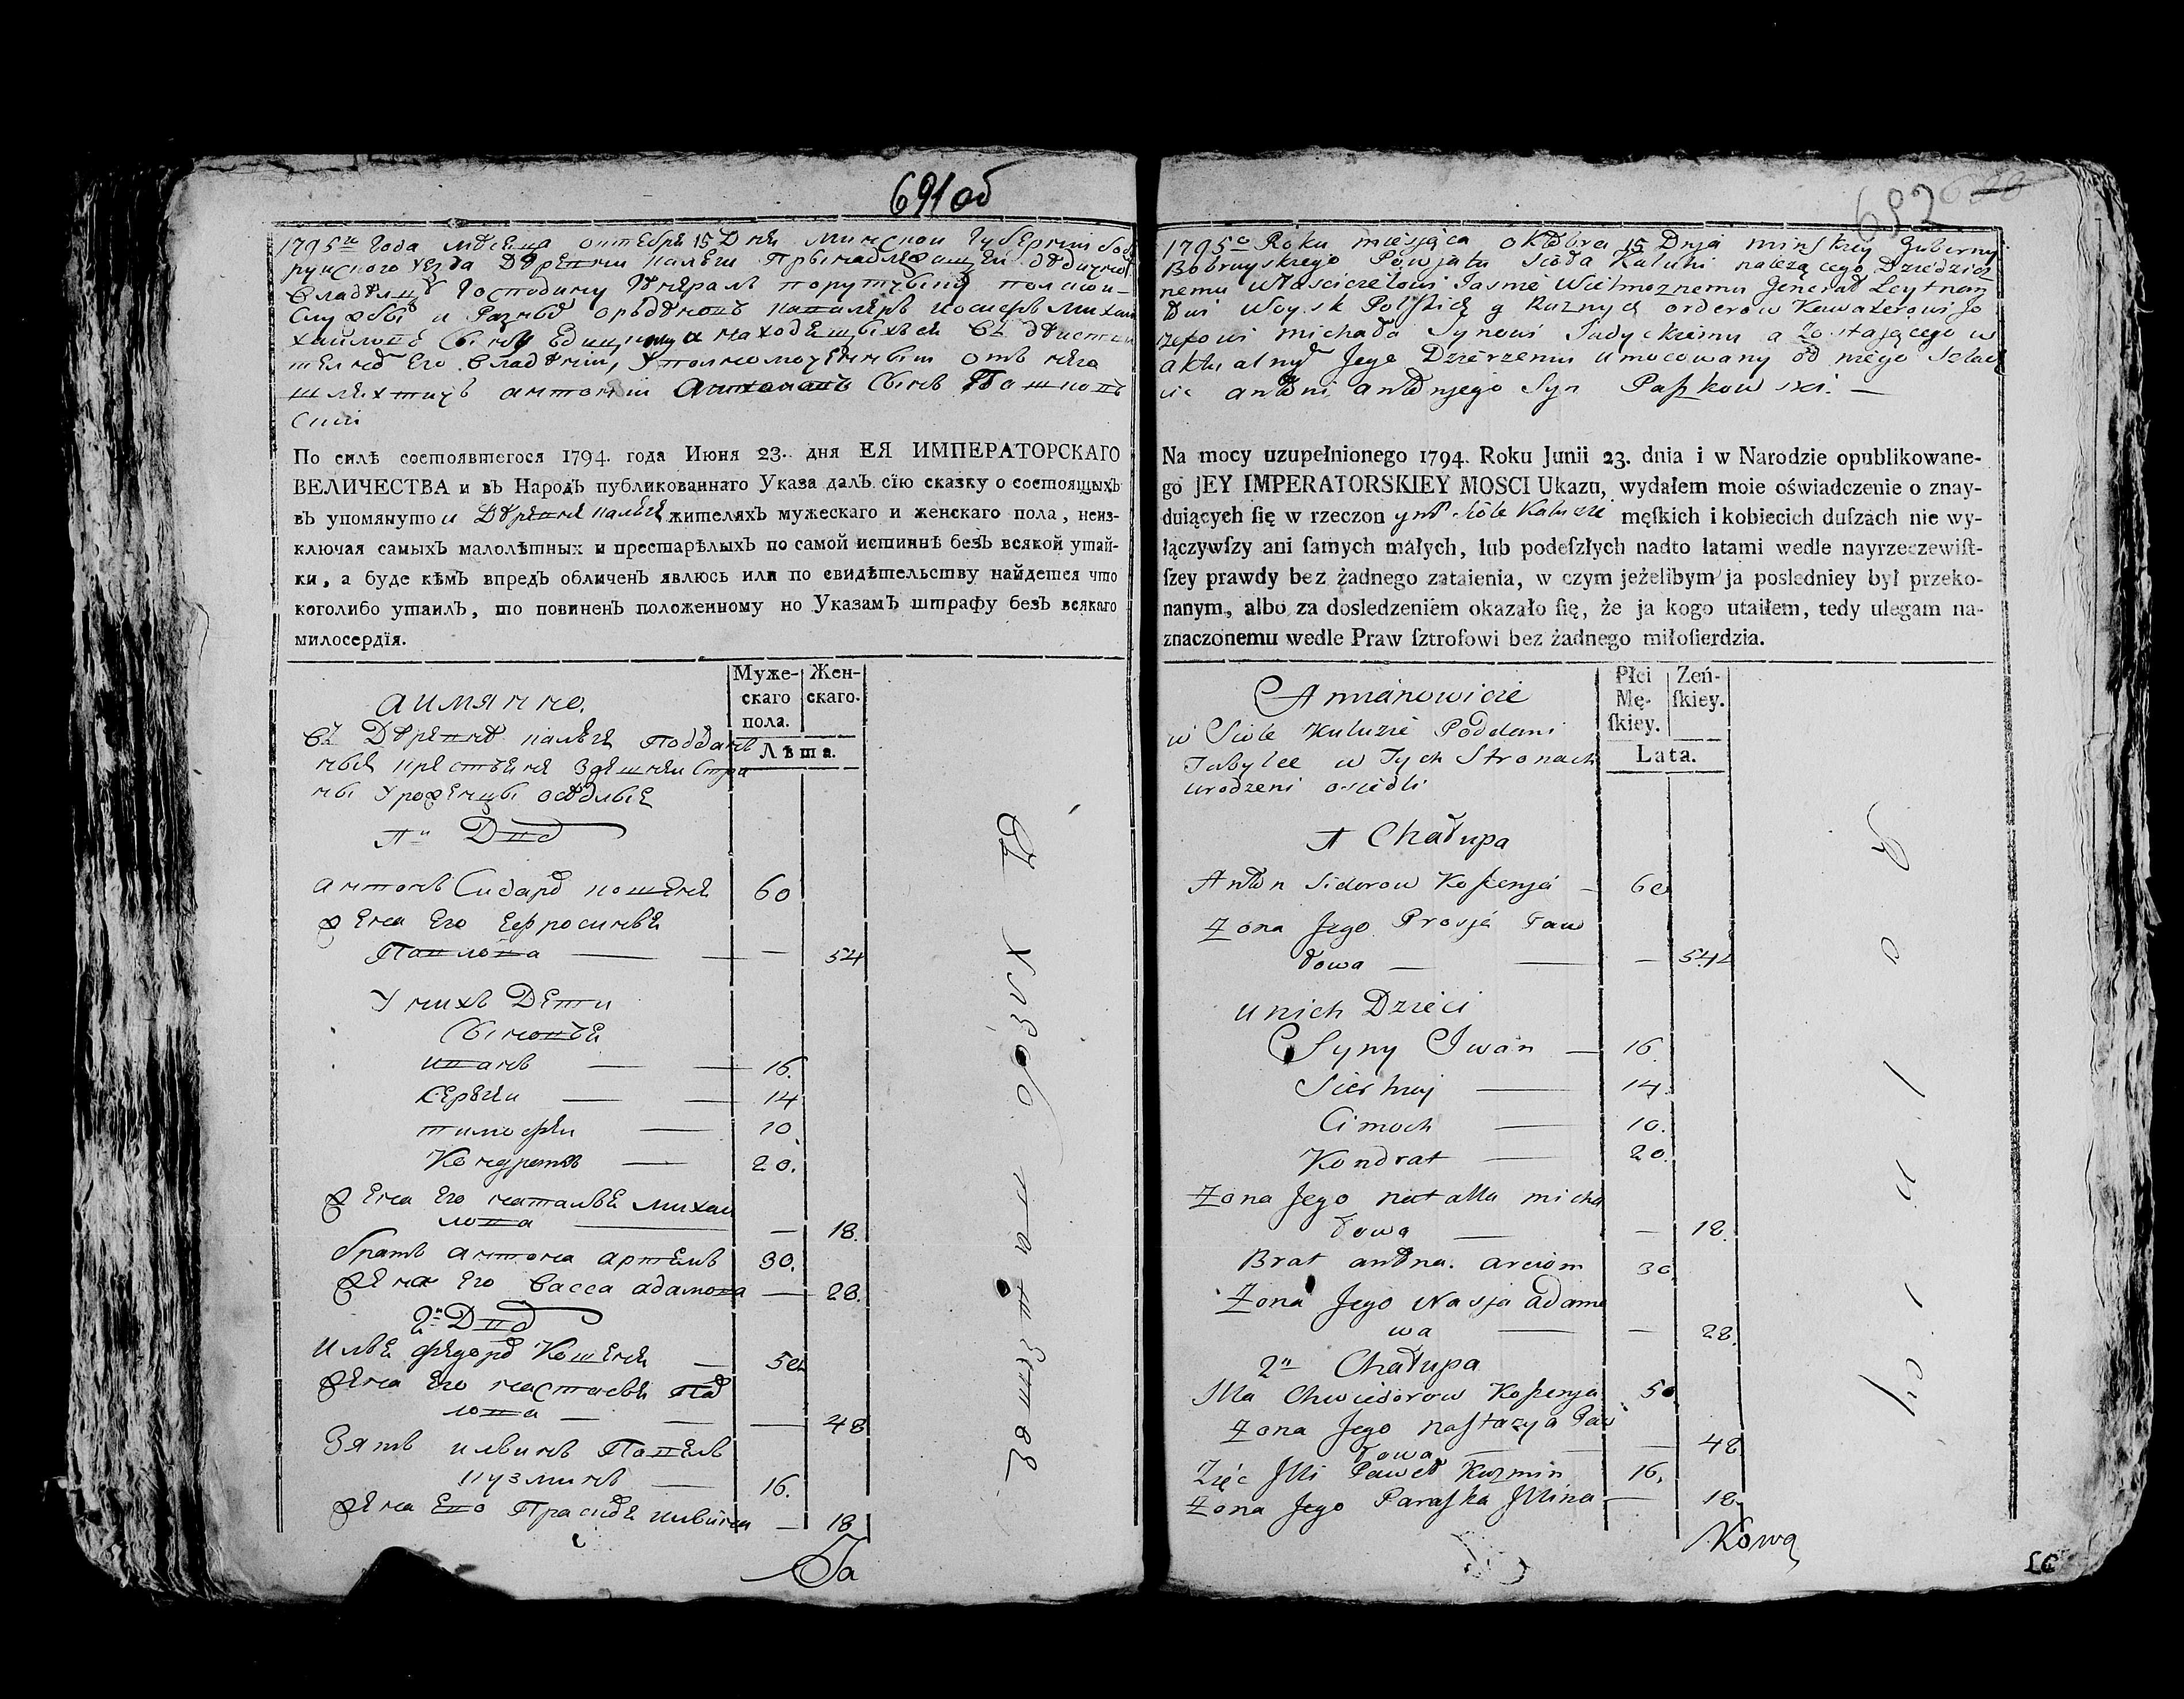 691 об
1795го Года месеца октебря 15 Дня минской Губернии Боб
руйского уезда Деревни калюги Принадлежащей дедичном
владельцу Господину Генералъ порутчику полской
службы и Разныхъ орденовъ кавалеръ иосифъ Михаи
хайловъ Сынъ
его владении, Уполномоченный отъ него
шляхтичъ антоний Антоновъ Сынъ Пашков
ский
По силѣ состоявшегося 1794. года Июня 23. дня ЕЯ ИМПЕРАТОРСКАГО
ВЕЛИЧЕСТВА и въ Народъ публикованнаго Указа далъ сїю сказку о состоящыхъ
въ упомянутои Деревне калюге жителяхъ мужескаго и женскаго пола, неиз-
ключая самыхъ малолѣтных и престарѣлыхъ по самой истиннѣ безъ всякой утай-
ки, а буде кѣмъ впредь обличенъ явлюсь или по свидѣтельству найдется что
коголибо утаилъ, то повиненъ положенному по Указамъ штрафу безъ всякаго
милосердїя.
Муже-скаго пола. Жен-скаго.
Лѣта.
аимянно.
въ Деревне калюге Поддан
ныя крестьяня Здешней Стра
ны Уроженцы оседлые
1й Двор
антонъ Сидоров кошеня 60
жена Его Ефросинья
Павлова — 54
У нихъ Дети
Сыновья
иванъ — 16.
Сергей — 14
тимофей — 10
Кондратъ — 20.
жена Его наталья михаи
лова — 18.
братъ антона артемъ 30.
жена Его васса адамова — 28.
2й Двор
илья федоров Кошеня — 50
жена Его настасья Пав
лова — 48
Зять ильинъ Павелъ
кузминъ — 16.
жена Его Праскевя ильина — 18
692
1795o Roku miesjąca oktobra 15 Dnja minskiey Guberny
Bobruyskiego Powjatu Sioła Kaluhi należącego Dziedzicz
nemu Właścicielowi Jasnie Wielmożnemu Generał Leytnan
towi Woysk Polskich y Rużnych orderow Kawalerowi Jo
zefowi michała Synowi Judyckiemu a zostającego w
aktualnym Jego Dzierżeniu Umocowany od niego Szlach
cic antoni antonjego Syn Paszkowski. —
Na mocy uzupełnionego 1794. Roku Junii 23. dnia i w Narodzie opublikowane-
go JEY IMPERATORSKIEY MOSCI Ukazu, wydałem moie oświadczenie o znay-
duiących ſię w rzeczon ym Siole Kaluzie męſkich i kobiecich duſzach nie wy-
łączywſzy ani ſamych małych, lub podeſzłych nadto latami wedle nayrzeczewiſt-
ſzey prawdy bez żadnego zataienia, w czym jeżelibym ja posledniey był przeko-
nanym, albo za dosledzeniem okazało ſię, że ja kogo utaiłem, tedy ulegam na-
znaczonemu wedle Praw ſztrofowi bez żadnego miłoſierdzia.
Płci Mę-ſkiey. Żeń-ſkiey.
Lata.
A mianowicie
w Siole Kuluzie Poddani
Tubylce w Tych Stronach
urodzeni osiedli
1 Chałupa
Anton Sidorow Koszenja — 60
Żona Jego Prosja Paw
łowa — 54
u nich Dzieci
Syny Iwan — 16.
Sierhiej — 14.
Cimoch — 10.
Kondrat — 20.
Żona Jego natalla micha
łowa — 18.
Brat antona. arciom 30
Żona Jego Wasja adamo
wa — 28.
2a Chałupa
Illa Chwiedorow Koszenja 50
Żona Jego nastazya Paw
łowa — 48
Zięć Illi Paweł Kuzmin 16.
Żona Jego Paraska Illina — 18.